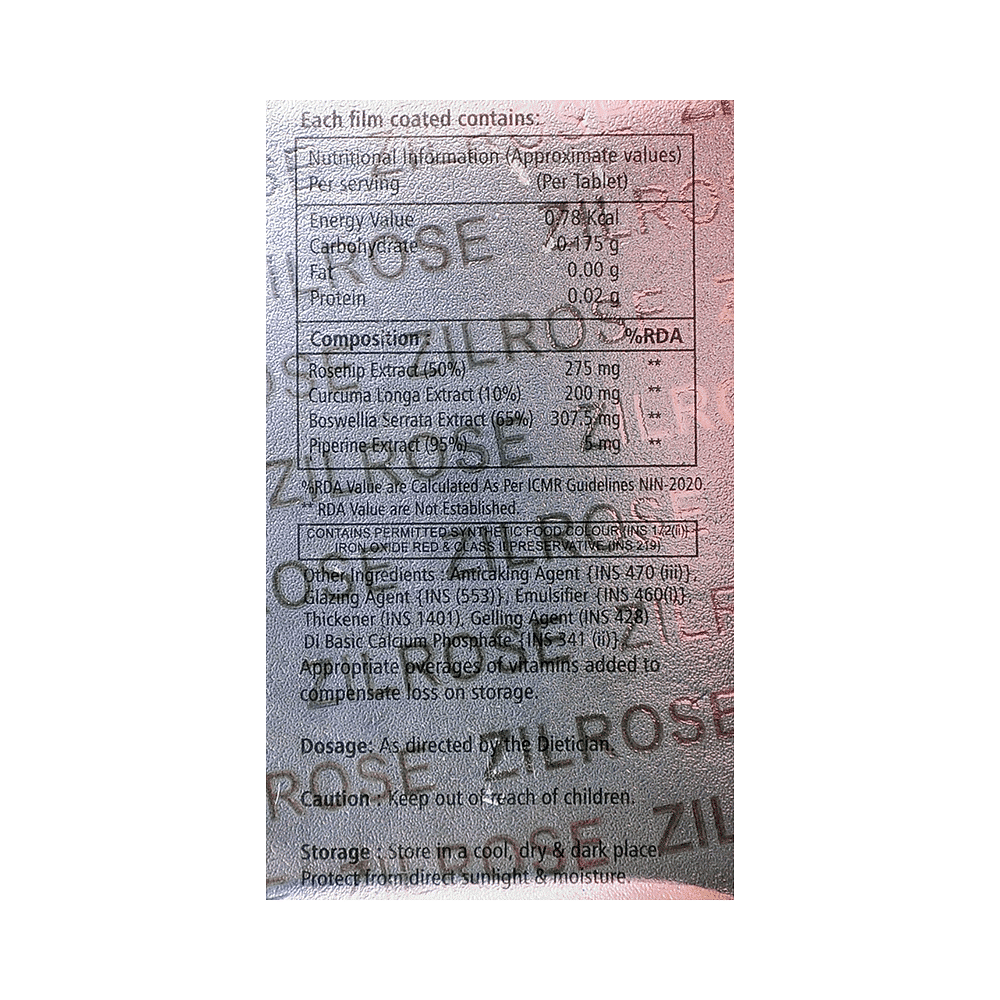 Each film coated contains:
Nutritional Information (Approximate values)
Per serving (Per Tablet)
Energy Value 0.78 Kcal
Carbohydrate 0.175 g
Fat 0.00 g
Protein 0.02 g
Composition : %RDA
Rosehip Extract (50%) 275 mg **
Curcuma Longa Extract (10%) 200 mg **
Boswellia Serrata Extract (65%) 307.5 mg **
Piperine Extract (95%) 5 mg **
%RDA Value are Calculated As Per ICMR Guidelines NIN-2020.
** RDA Value are Not Established.
CONTAINS PERMITTED SYNTHETIC FOOD COLOUR (INS 172(ii),
IRON OXIDE RED & CLASS II PRESERVATIVE (INS 219)
Other Ingredients : Anticaking Agent {INS 470 (iii)},
Glazing Agent {INS (553)}, Emulsifier {INS 460(i)},
Thickener (INS 1401), Gelling Agent (INS 428)
Di Basic Calcium Phosphate {INS 341 (ii)},
Appropriate overages of vitamins added to
compensate loss on storage.
Dosage: As directed by the Dietician.
Caution : Keep out of reach of children.
Storage : Store in a cool, dry & dark place.
Protect from direct sunlight & moisture.
ZILROSE
ZILROSE
ZILROSE
ZILROSE
ZILROSE
ZILROSE
ZILROSE